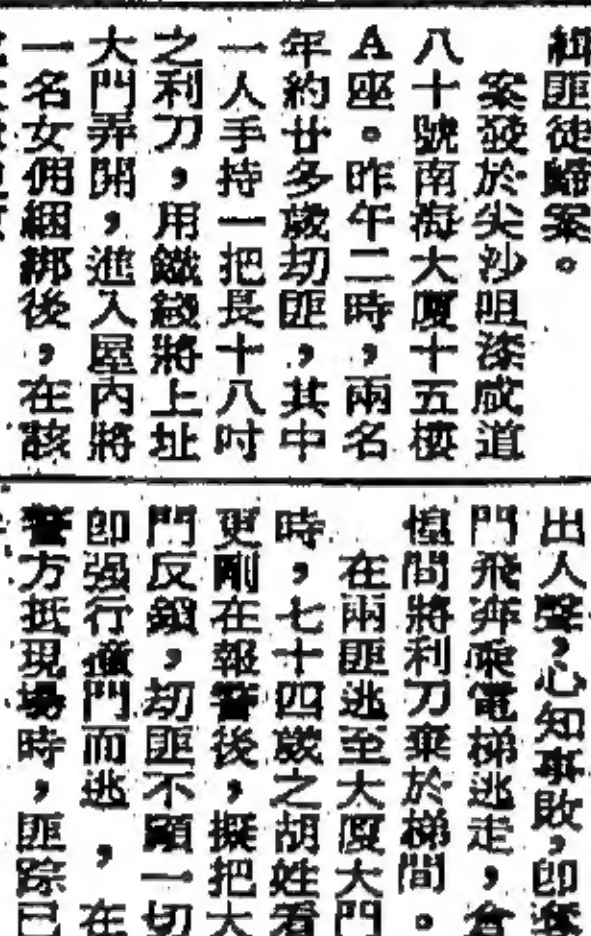 緝匪徒歸案。
案發於尖沙咀漆咸道
八十號南海大廈十五樓
A座。昨午二時，兩名
年約廿多歲刧匪，其中
一人手持一把長十八吋
之利刀，用鐵線將上址
大門弄開，進入屋內將
一名女佣綑綁後，在該
出人聲，心知事敗，卽奪
門飛奔乘電梯逃走，倉
惶間將利刀棄於梯間。
在兩匪逃至大廈大門
時，七十四歲之胡姓看
更剛在報警後，擬把大
門反鎖，刧匪不顧一切
卽强行奪門而逃，在
警方抵現場時，匪踪已